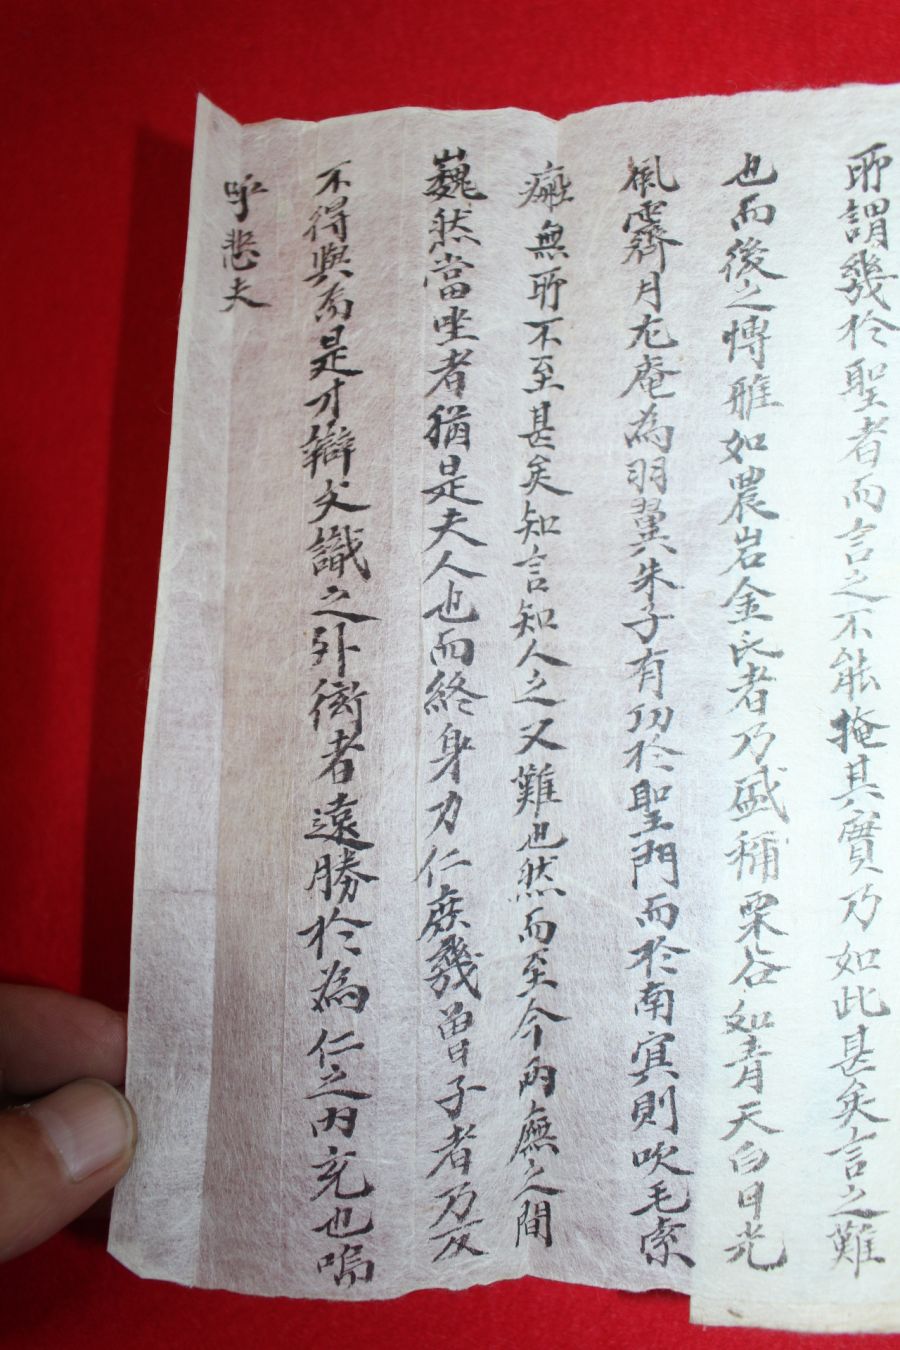 所謂幾於聖者而言之不能掩其實乃如此甚矣言之難
也而後之博雅如農岩金氏者乃盛稱栗谷如青天白日光
風霽月尤庵為羽翼朱子有功於聖門而於南冥則吹毛索
疵無所不至甚矣知言知人之又難也然而至今兩廡之間
巍然當坐者猶是夫人也而終身力仁庶幾曾子者乃反
不得與焉是才辯文識之外衒者遠勝於為仁之內充也嗚
呼悲夫